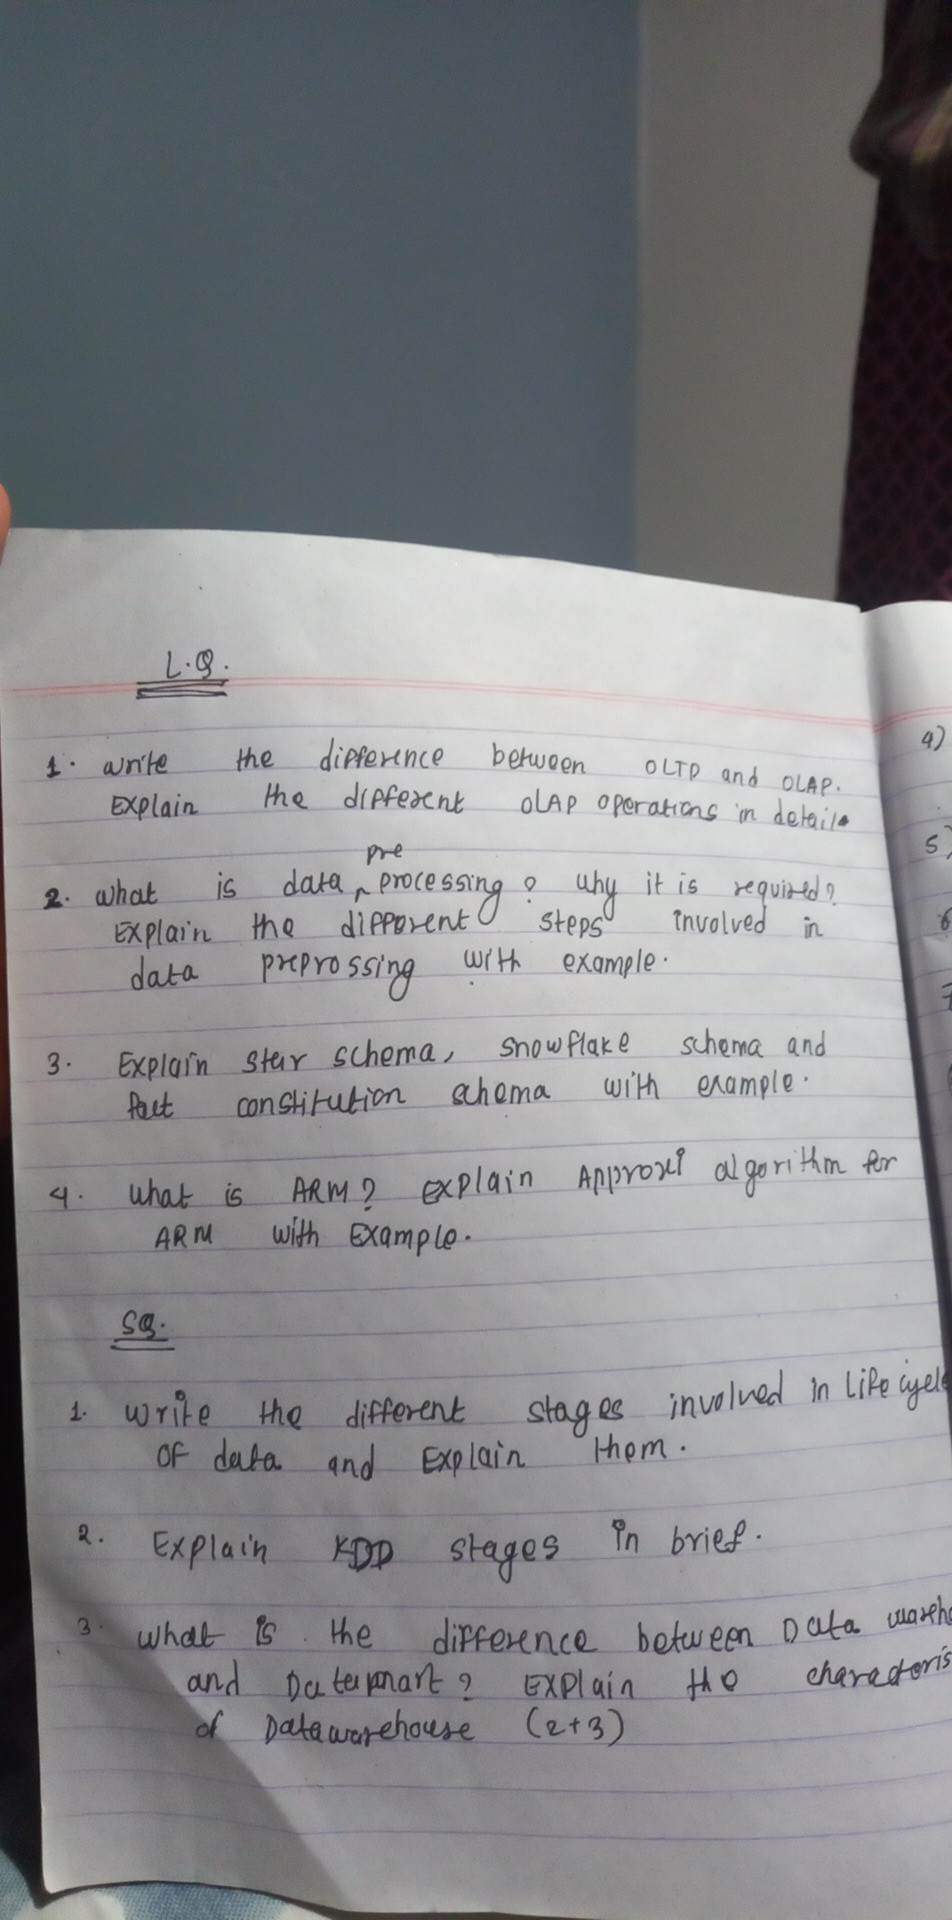 L.Q.
1. write the difference between OLTP and OLAP.
Explain the different OLAP operations in detail.
pre
2. what is data ^ processing? why it is required?
Explain the different steps involved in
data preprossing with example.
3. Explain Star schema, snowflake schema and
fact constitution schema with example.
4. what is ARM? explain algorithm for
ARM with Example.
SQ.
1. write the different stages involved in life cycle
of data and Explain them.
2. Explain KDD stages in brief.
3. what is the difference between Data wareho
and Datamart? Explain the characteris
of Datawarehouse (2+3)
4)
5)
6
7